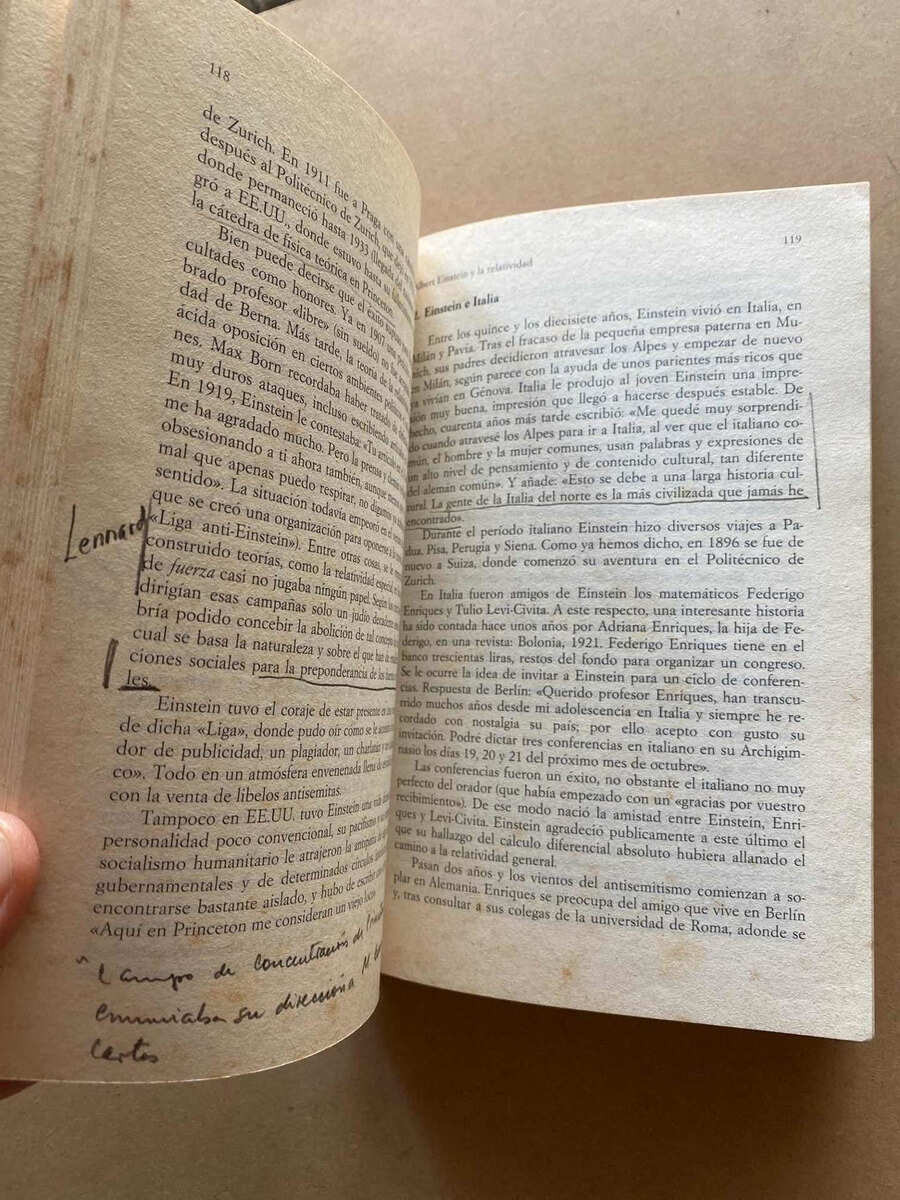 118
de Zurich. En 1911 fue a Praga con una
después al Politécnico de Zurich, que dejó
donde permaneció hasta 1933 (llegada del
gró a EE.UU., donde estuvo hasta su
la cátedra de física teórica en Princeton.
Bien puede decirse que el éxito
cultades como honores. Ya en 1907,
brado profesor «libre» (sin sueldo) no
dad de Berna. Más tarde, la teoría de la
ácida oposición en ciertos ambientes
nes. Max Born recordaba haber tratado de
muy duros ataques, incluso escribiendo
En 1919, Einstein le contestaba: «Tu artículo
me ha agradado mucho. Pero la prensa y
obsesionando a ti ahora también, aunque
mal que apenas puedo respirar, no digamos
sentido». La situación todavía empeoró en el
que se creó una organización para oponerse a
«Liga anti-Einstein»). Entre otras cosas, se le
construido teorías, como la relatividad especial, en
de fuerza casi no jugaba ningún papel. Según los
dirigían esas campañas sólo un judío
bría podido concebir la abolición de tal concepto
cual se basa la naturaleza y sobre el que han de
ciones sociales para la preponderancia de los
les.
Lennard
Einstein tuvo el coraje de estar presente en
de dicha «Liga», donde pudo oír cómo se le
dor de publicidad, un plagiador, un charlatán y
co». Todo en un atmósfera envenenada llena de
con la venta de libelos antisemitas.
Tampoco en EE.UU. tuvo Einstein una vida
personalidad poco convencional, su pacifismo y
socialismo humanitario le atrajeron la antipatía de
gubernamentales y de determinados círculos
encontrarse bastante aislado, y hubo de escribir
«Aquí en Princeton me consideran un viejo loco»
"Campo de concentración de
enunciaba su dirección a
cartas
119
lbert Einstein y la relatividad
. Einstein e Italia
Entre los quince y los diecisiete años, Einstein vivió en Italia, en
Milán y Pavía. Tras el fracaso de la pequeña empresa paterna en Mu-
ich, sus padres decidieron atravesar los Alpes y empezar de nuevo
en Milán, según parece con la ayuda de unos parientes más ricos que
ya vivían en Génova. Italia le produjo al joven Einstein una impre-
sión muy buena, impresión que llegó a hacerse después estable. De
hecho, cuarenta años más tarde escribió: «Me quedé muy sorprendi-
do cuando atravesé los Alpes para ir a Italia, al ver que el italiano co-
mún, el hombre y la mujer comunes, usan palabras y expresiones de
un alto nivel de pensamiento y de contenido cultural, tan diferente
del alemán común». Y añade: «Esto se debe a una larga historia cul-
tural. La gente de la Italia del norte es la más civilizada que jamás he
encontrado».
Durante el período italiano Einstein hizo diversos viajes a Pa-
dua, Pisa, Perugia y Siena. Como ya hemos dicho, en 1896 se fue de
nuevo a Suiza, donde comenzó su aventura en el Politécnico de
Zurich.
En Italia fueron amigos de Einstein los matemáticos Federigo
Enriques y Tulio Levi-Civita. A este respecto, una interesante historia
ha sido contada hace unos años por Adriana Enriques, la hija de Fe-
derigo, en una revista: Bolonia, 1921. Federigo Enriques tiene en el
banco trescientas liras, restos del fondo para organizar un congreso.
Se le ocurre la idea de invitar a Einstein para un ciclo de conferen-
cias. Respuesta de Berlín: «Querido profesor Enriques, han transcu-
rrido muchos años desde mi adolescencia en Italia y siempre he re-
cordado con nostalgia su país; por ello acepto con gusto su
invitación. Podré dictar tres conferencias en italiano en su Archigim-
nasio los días 19, 20 y 21 del próximo mes de octubre».
Las conferencias fueron un éxito, no obstante el italiano no muy
perfecto del orador (que había empezado con un «gracias por vuestro
recibimiento»). De ese modo nació la amistad entre Einstein, Enri-
ques y Levi-Civita. Einstein agradeció publicamente a este último el
que su hallazgo del cálculo diferencial absoluto hubiera allanado el
camino a la relatividad general.
Pasan dos años y los vientos del antisemitismo comienzan a so-
plar en Alemania. Enriques se preocupa del amigo que vive en Berlín
y, tras consultar a sus colegas de la universidad de Roma, adonde se